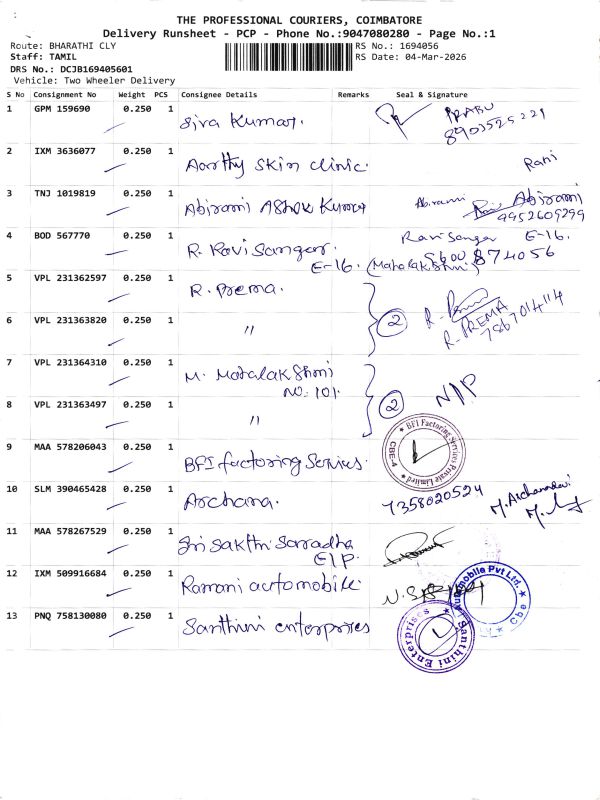 THE PROFESSIONAL COURIERS, COIMBATORE
Delivery Runsheet - PCP - Phone No.:9047080280 - Page No.:1
Route: BHARATHI CLY RS No.: 1694056
Staff: TAMIL RS Date: 04-Mar-2026
DRS No.: DCJB169405601
Vehicle: Two Wheeler Delivery
S No Consignment No Weight PCS Consignee Details Remarks Seal & Signature
1 GPM 159690 0.250 1 Siva Kumar. PRABU
2 IXM 3636077 0.250 1 Aarthy Skin clinic. Rani
3 TNJ 1019819 0.250 1 Abirami Ashok Kumar Abirami Abirami
9952609299
4 BOD 567770 0.250 1 R. Ravi Sangar. Ravi Sangar E-16.
E-16. (Mahalakshmi) 9600874056
5 VPL 231362597 0.250 1 R. Prema.
6 VPL 231363820 0.250 1 " 2 R. PREMA
7867014114
7 VPL 231364310 0.250 1 M. Mahalakshmi
No. 101.
8 VPL 231363497 0.250 1 " 2 N/P
9 MAA 578206043 0.250 1 BFI factoring Services. BFI Factoring Services Private Limited CBE-4
10 SLM 390465428 0.250 1 Archana. 7358020524 M. Archanadevi
11 MAA 578267529 0.250 1 Sri Sakthi Sarradha
E/P.
12 IXM 509916684 0.250 1 Ramani automobile Automobile Pvt Ltd. Cbe
13 PNQ 758130080 0.250 1 Santhini enterprises Santhini Enterprises